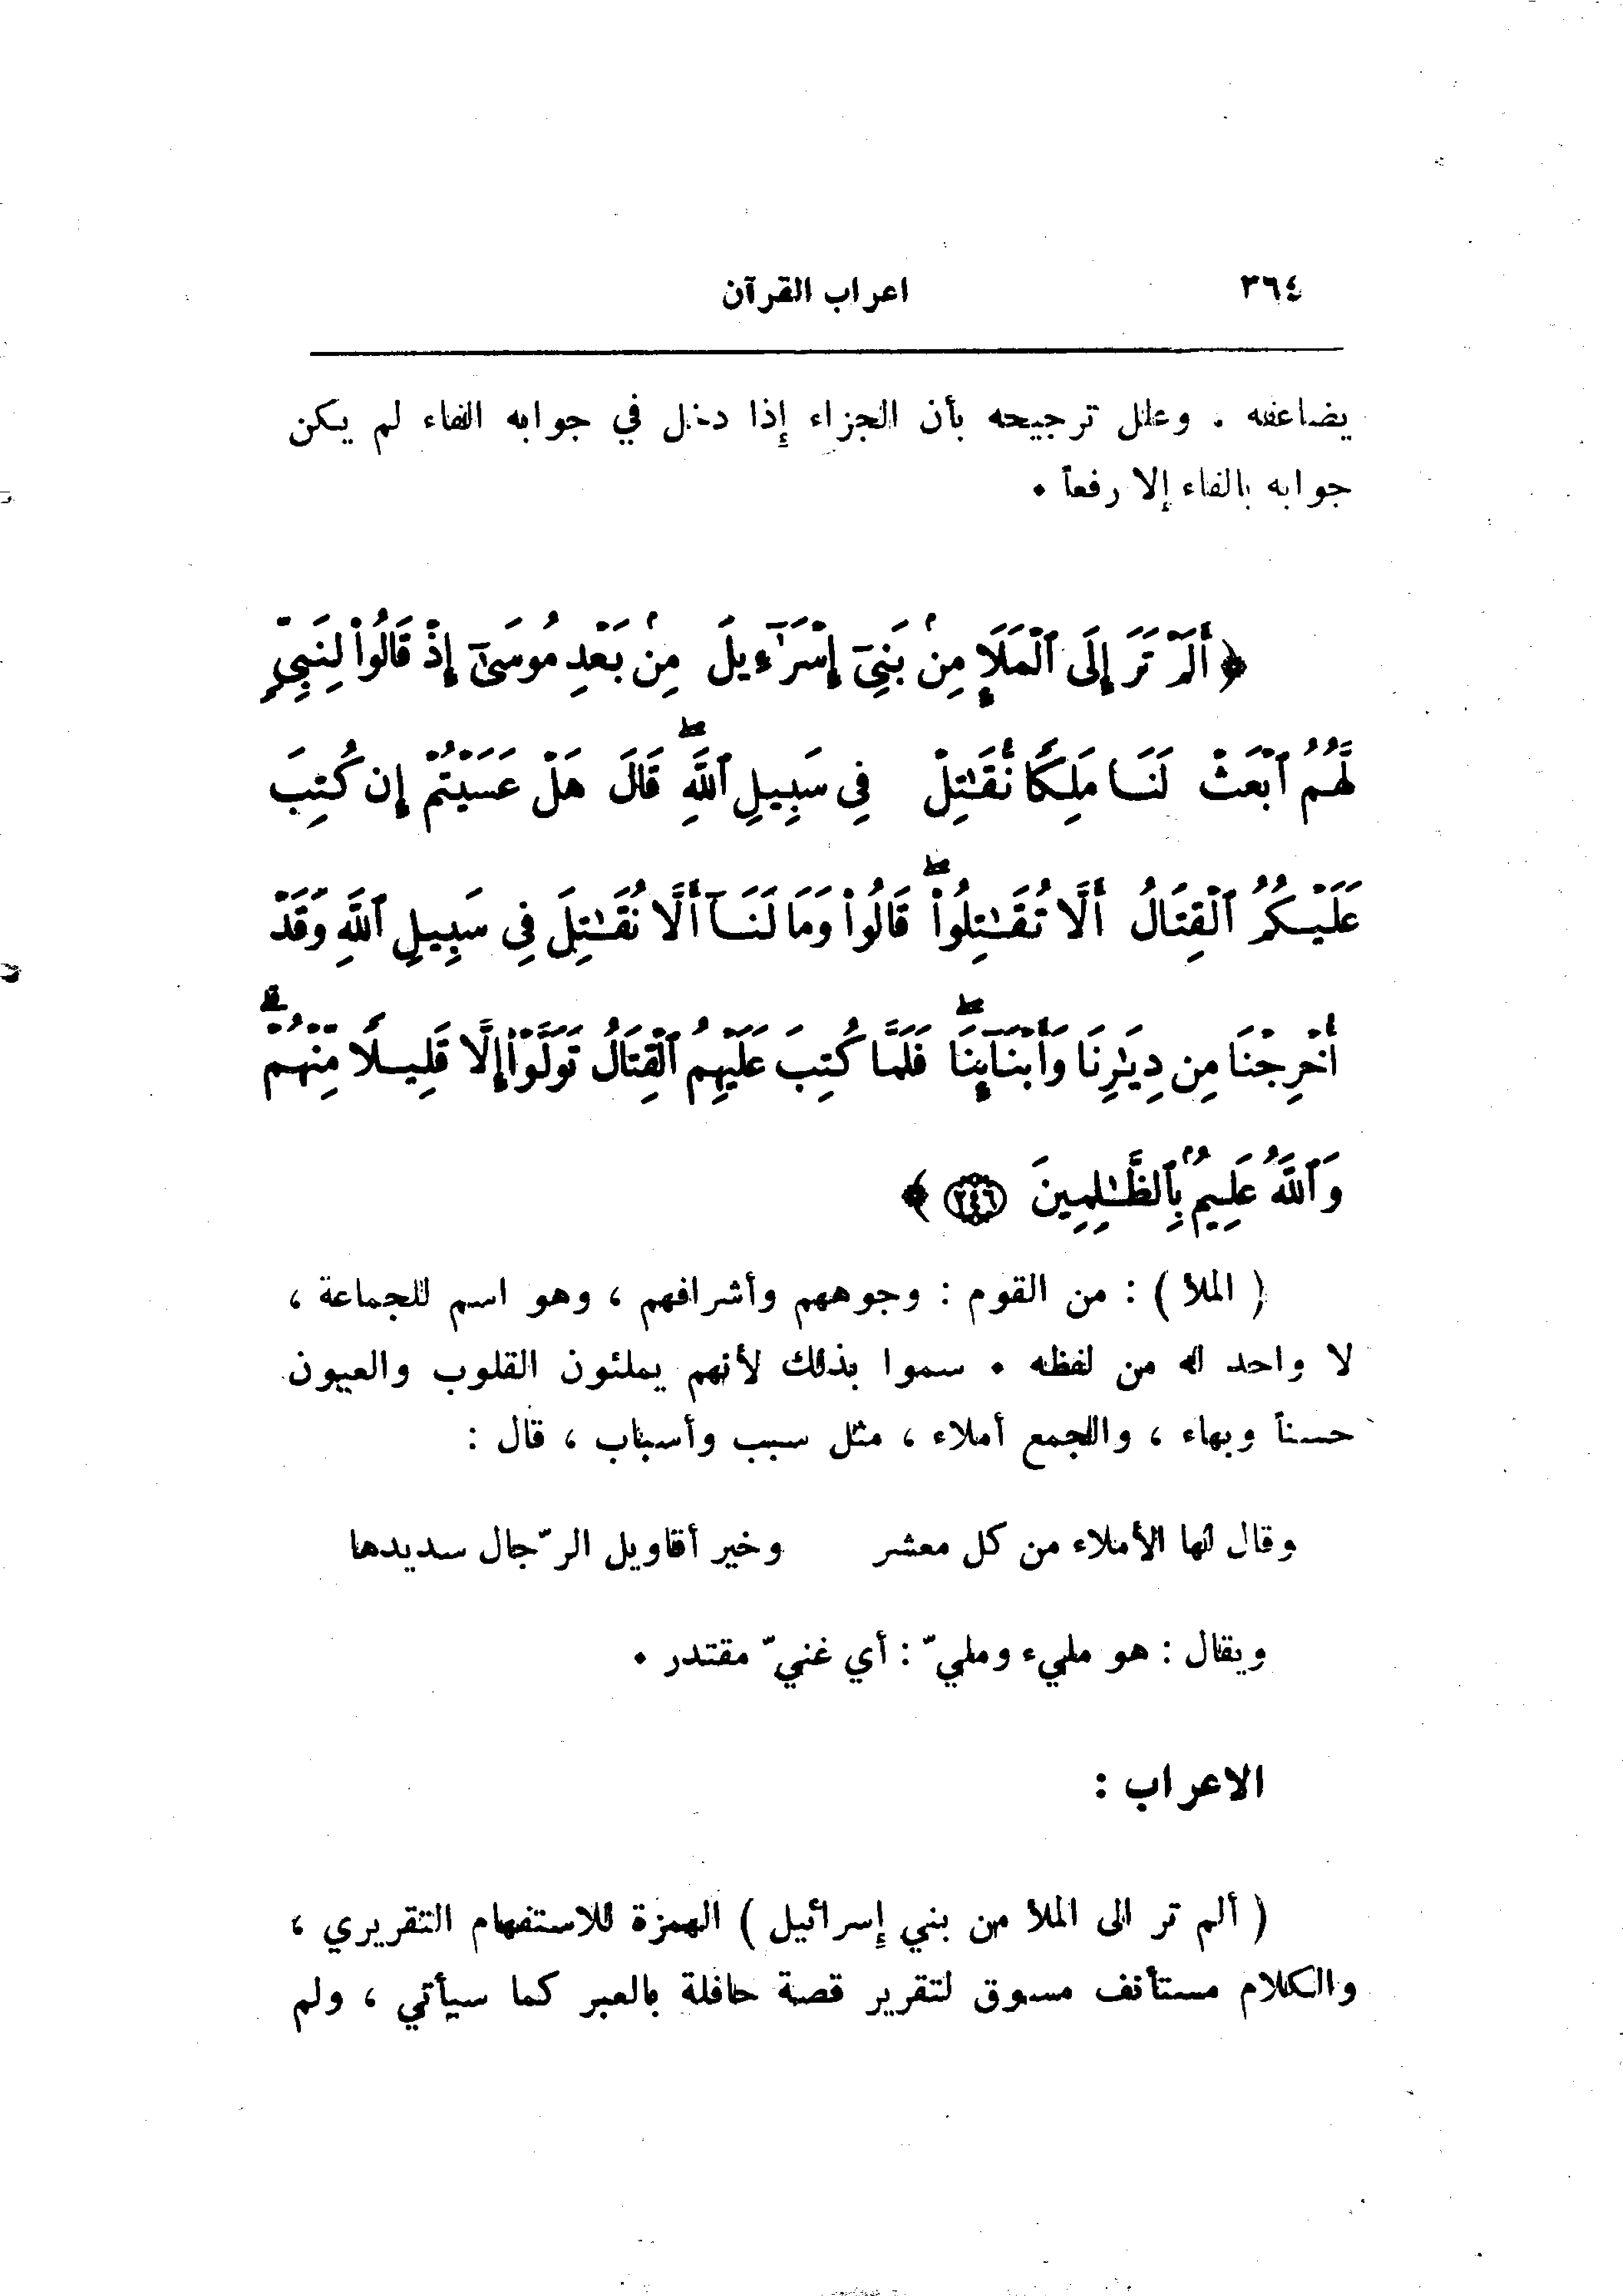 ٣٦٤ اعراب القرآن
يضاعفه . وعلل ترجيحه بأن الجزاء إذا دخل في جوابه الفاء لم يكن
جوابه بالفاء إلا رفعاً .
﴿ أَلَمْ تَرَ إِلَى ٱلْمَلَإِ مِنۢ بَنِىٓ إِسْرَٰٓءِيلَ مِنۢ بَعْدِ مُوسَىٰٓ إِذْ قَالُوا۟ لِنَبِىٍّ
لَّهُمُ ٱبْعَثْ لَنَا مَلِكًا نُّقَـٰتِلْ فِى سَبِيلِ ٱللَّهِ ۖ قَالَ هَلْ عَسَيْتُمْ إِن كُتِبَ
عَلَيْكُمُ ٱلْقِتَالُ أَلَّا تُقَـٰتِلُوا۟ ۖ قَالُوا۟ وَمَا لَنَآ أَلَّا نُقَـٰتِلَ فِى سَبِيلِ ٱللَّهِ وَقَدْ
أُخْرِجْنَا مِن دِيَـٰرِنَا وَأَبْنَآئِنَا ۖ فَلَمَّا كُتِبَ عَلَيْهِمُ ٱلْقِتَالُ تَوَلَّوْا۟ إِلَّا قَلِيلًا مِّنْهُمْ ۗ
وَٱللَّهُ عَلِيمٌۢ بِٱلظَّـٰلِمِينَ ٢٤٦ ﴾
( الملأ ) : من القوم : وجوههم وأشرافهم ، وهو اسم للجماعة ،
لا واحد له من لفظه . سموا بذلك لأنهم يملئون القلوب والعيون
حسناً وبهاء ، والجمع أملاء ، مثل سبب وأسباب ، قال :
وقال لها الأملاء من كل معشر وخير أقاويل الرّجال سديدها
ويقال : هو مليء ومليّ : أي غنيّ مقتدر .
الاعراب :
( ألم تر الى الملأ من بني إسرائيل ) الهمزة للاستفهام التقريري ،
والكلام مستأنف مسوق لتقرير قصة حافلة بالعبر كما سيأتي ، ولم